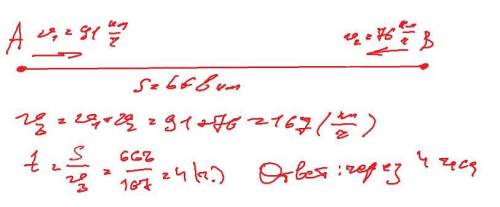 A v₁ = 91 км/ч v₂ = 76 км/ч B
S = 668 км
v₃ = v₁ + v₂ = 91 + 76 = 167 (км/ч)
t = S/v₃ = 668/167 = 4 (ч.) Ответ: через 4 часа